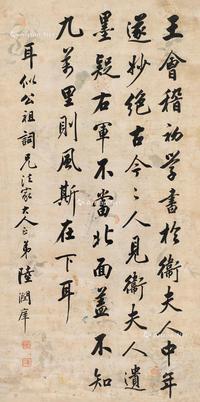 王會稽初學書於衛夫人中年
遂妙絕古今今人見衛夫人遺
墨疑右軍不當北面蓋不知
九萬里則風斯在下耳
耳似公祖詞兄法家大人正弟陸潤庠